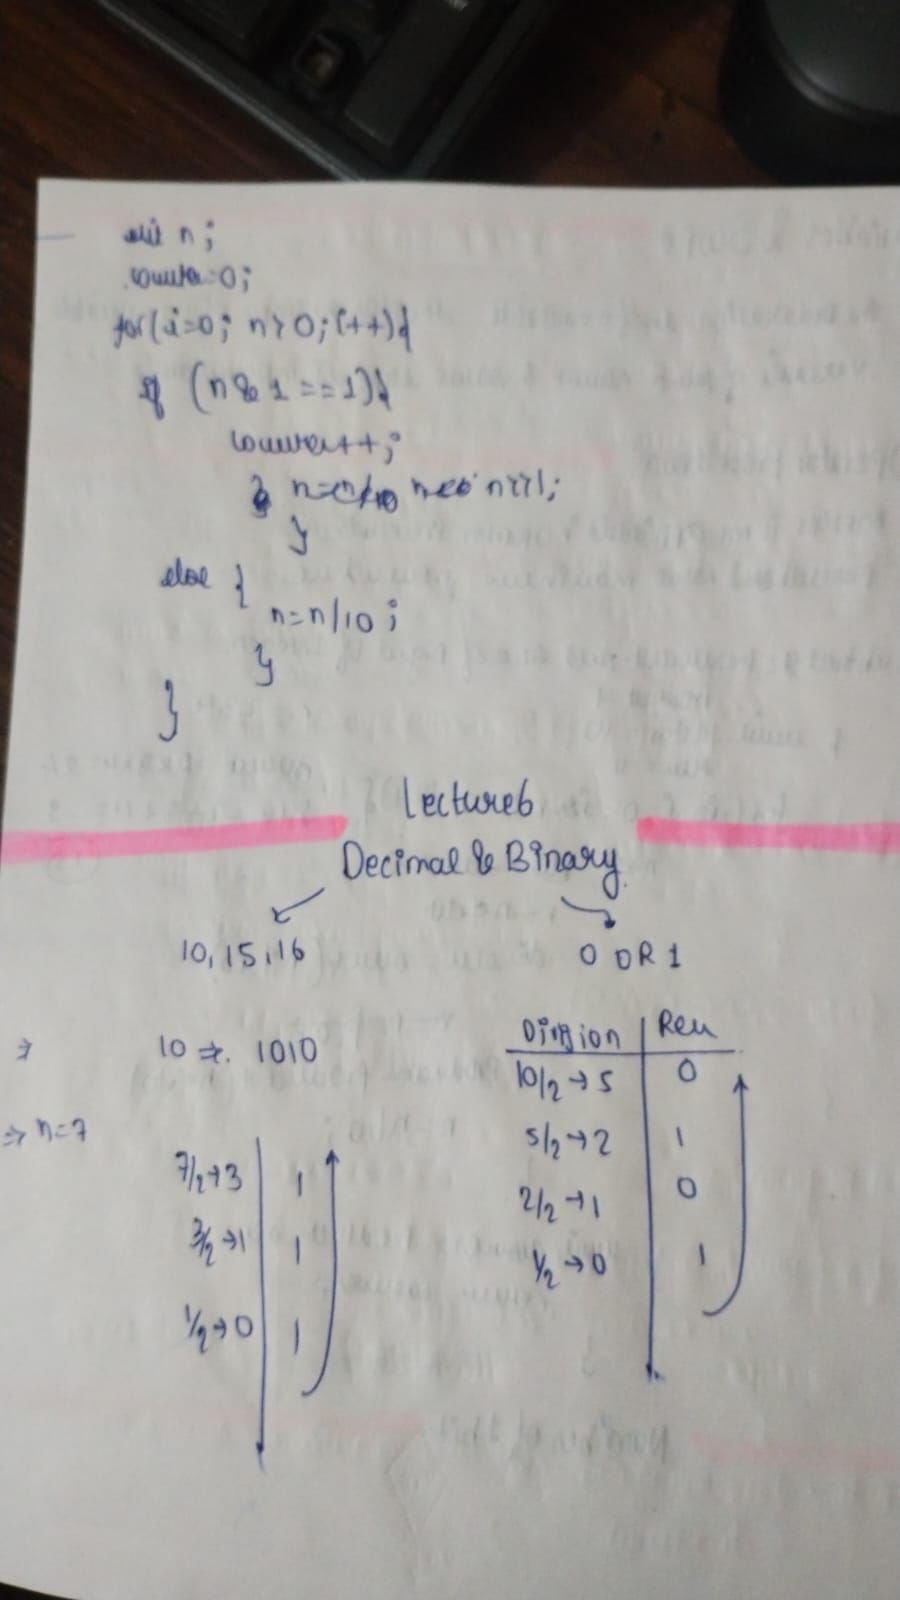 int n;
counter=0;
for(i=0; n>0; i++){
if (n&1==1){
counter++;
n=n>>1;
}
else {
n=n/10;
}
}
Lecture6
Decimal & Binary
10, 15, 16 0 OR 1
10 → 1010
Division | Rem
10/2 → 5 0
5/2 → 2 1
2/2 → 1 0
1/2 → 0 1
⇒ n=7
7/2 → 3 1
3/2 → 1 1
1/2 → 0 1